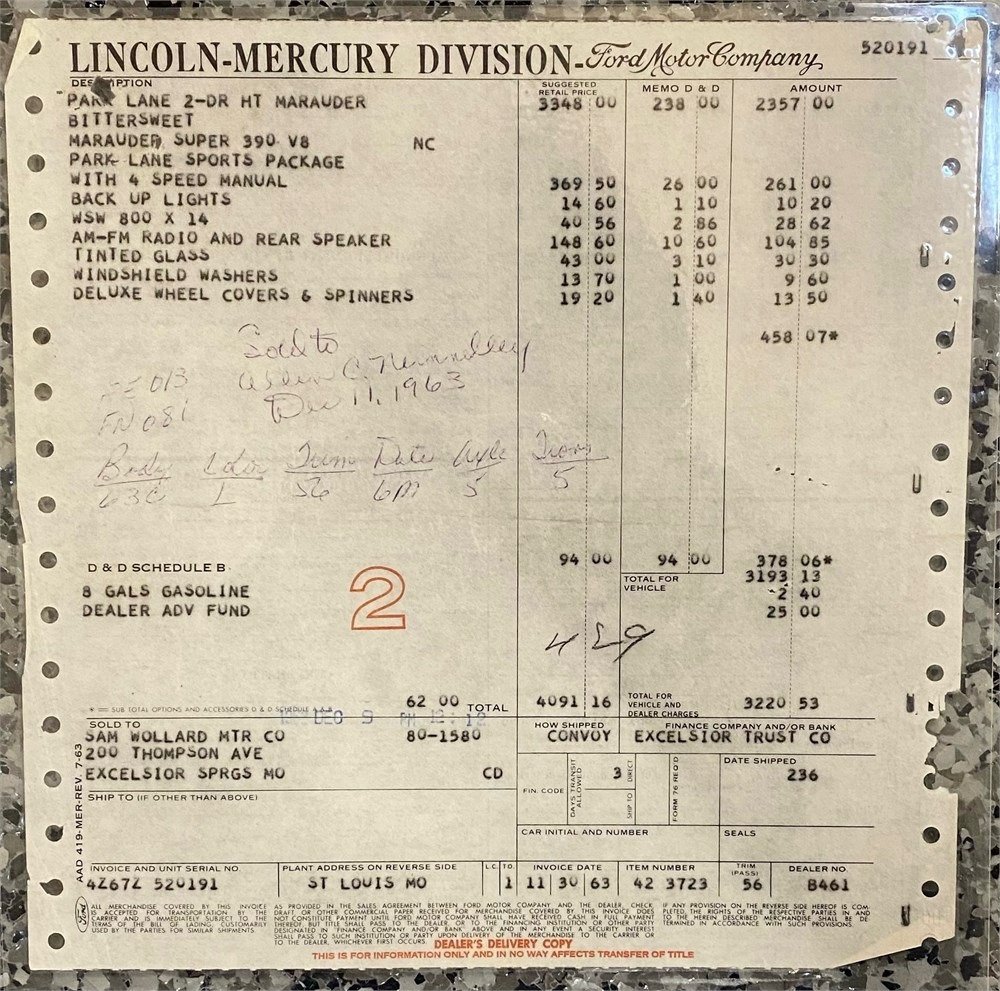 LINCOLN-MERCURY DIVISION-Ford Motor Company 520191
DESCRIPTION SUGGESTED RETAIL PRICE MEMO D & D AMOUNT
PARK LANE 2-DR HT MARAUDER 3348 00 238 00 2357 00
BITTERSWEET
MARAUDER SUPER 390 V8 NC
PARK LANE SPORTS PACKAGE
WITH 4 SPEED MANUAL 369 50 26 00 261 00
BACK UP LIGHTS 14 60 1 10 10 20
WSW 800 X 14 40 56 2 86 28 62
AM-FM RADIO AND REAR SPEAKER 148 60 10 60 104 85
TINTED GLASS 43 00 3 10 30 30
WINDSHIELD WASHERS 13 70 1 00 9 60
DELUXE WHEEL COVERS & SPINNERS 19 20 1 40 13 50
458 07*
Sold to
Dec 11, 1963
FN 081
Body Color Trim Date Axle Trans
63C L 56 6M 5 5
D & D SCHEDULE B 94 00 94 00 378 06*
TOTAL FOR VEHICLE 3193 13
8 GALS GASOLINE 2 40
DEALER ADV FUND 25 00
2
62 00 TOTAL 4091 16 TOTAL FOR VEHICLE AND DEALER CHARGES 3220 53
* = SUB TOTAL OPTIONS AND ACCESSORIES D & D SCHEDULE A & B
DEC 9
SOLD TO HOW SHIPPED FINANCE COMPANY AND/OR BANK
SAM WOLLARD MTR CO 80-1580 CONVOY EXCELSIOR TRUST CO
200 THOMPSON AVE
EXCELSIOR SPRGS MO CD
FIN. CODE DAYS TRANSIT ALLOWED 3 SHIP TO DIRECT FORM 76 REQ'D DATE SHIPPED
236
SHIP TO (IF OTHER THAN ABOVE)
CAR INITIAL AND NUMBER SEALS
AAD 419-MER-REV. 7-63
INVOICE AND UNIT SERIAL NO. PLANT ADDRESS ON REVERSE SIDE L.C. T.O. INVOICE DATE ITEM NUMBER TRIM (PASS) DEALER NO.
4Z67Z 520191 ST LOUIS MO 1 11 30 63 42 3723 56 8461
Ford
ALL MERCHANDISE COVERED BY THIS INVOICE IS ACCEPTED FOR TRANSPORTATION BY THE CARRIER AND IS IMMEDIATELY SUBJECT TO THE TERMS OF THE BILL OF LADING, CUSTOMARILY USED BY THE PARTIES FOR SIMILAR SHIPMENTS.
AS PROVIDED IN THE SALES AGREEMENT BETWEEN FORD MOTOR COMPANY AND THE DEALER, CHECK, DRAFT OR OTHER COMMERCIAL PAPER RECEIVED FOR MERCHANDISE COVERED BY THIS INVOICE DOES NOT CONSTITUTE PAYMENT UNTIL FORD MOTOR COMPANY SHALL HAVE RECEIVED CASH IN FULL PAYMENT THEREOF BUT TITLE SHALL PASS TO THE DEALER OR TO THE FINANCING INSTITUTION DESIGNATED IN "FINANCE COMPANY AND/OR BANK" ABOVE AND IN ANY EVENT A SECURITY INTEREST SHALL PASS TO SUCH INSTITUTION OR PARTY UPON DELIVERY OF THE MERCHANDISE TO THE CARRIER OR TO THE DEALER, WHICHEVER FIRST OCCURS.
IF ANY PROVISION ON THE REVERSE SIDE HEREOF IS COMPLETED, THE RIGHTS OF THE RESPECTIVE PARTIES IN AND TO THE HEREIN DESCRIBED MERCHANDISE SHALL BE DETERMINED IN ACCORDANCE WITH SUCH PROVISIONS.
DEALER'S DELIVERY COPY
THIS IS FOR INFORMATION ONLY AND IN NO WAY AFFECTS TRANSFER OF TITLE